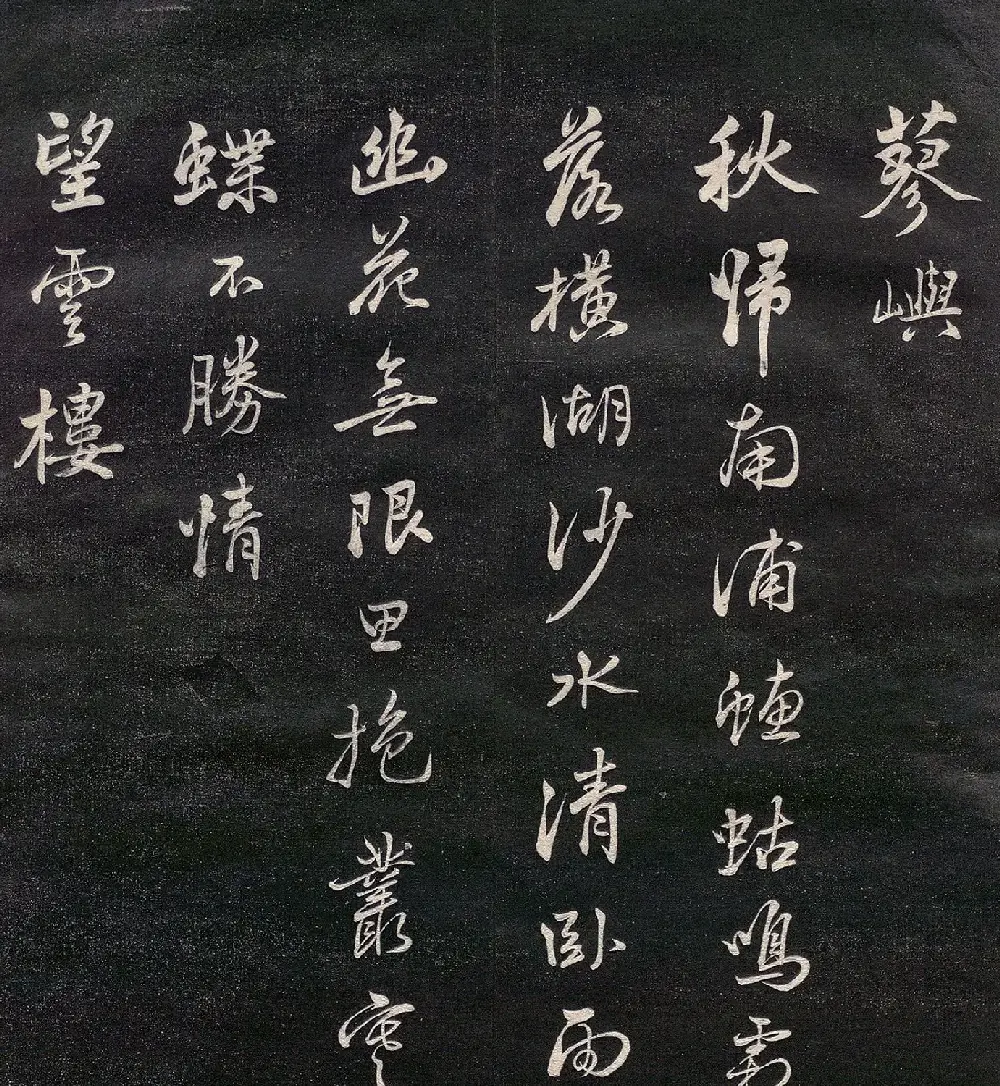 蓼嶼
秋歸南浦蟪蛄鳴霜
落橫湖沙水清卧雨
幽花無限思抱叢寒
蝶不勝情
望雲樓